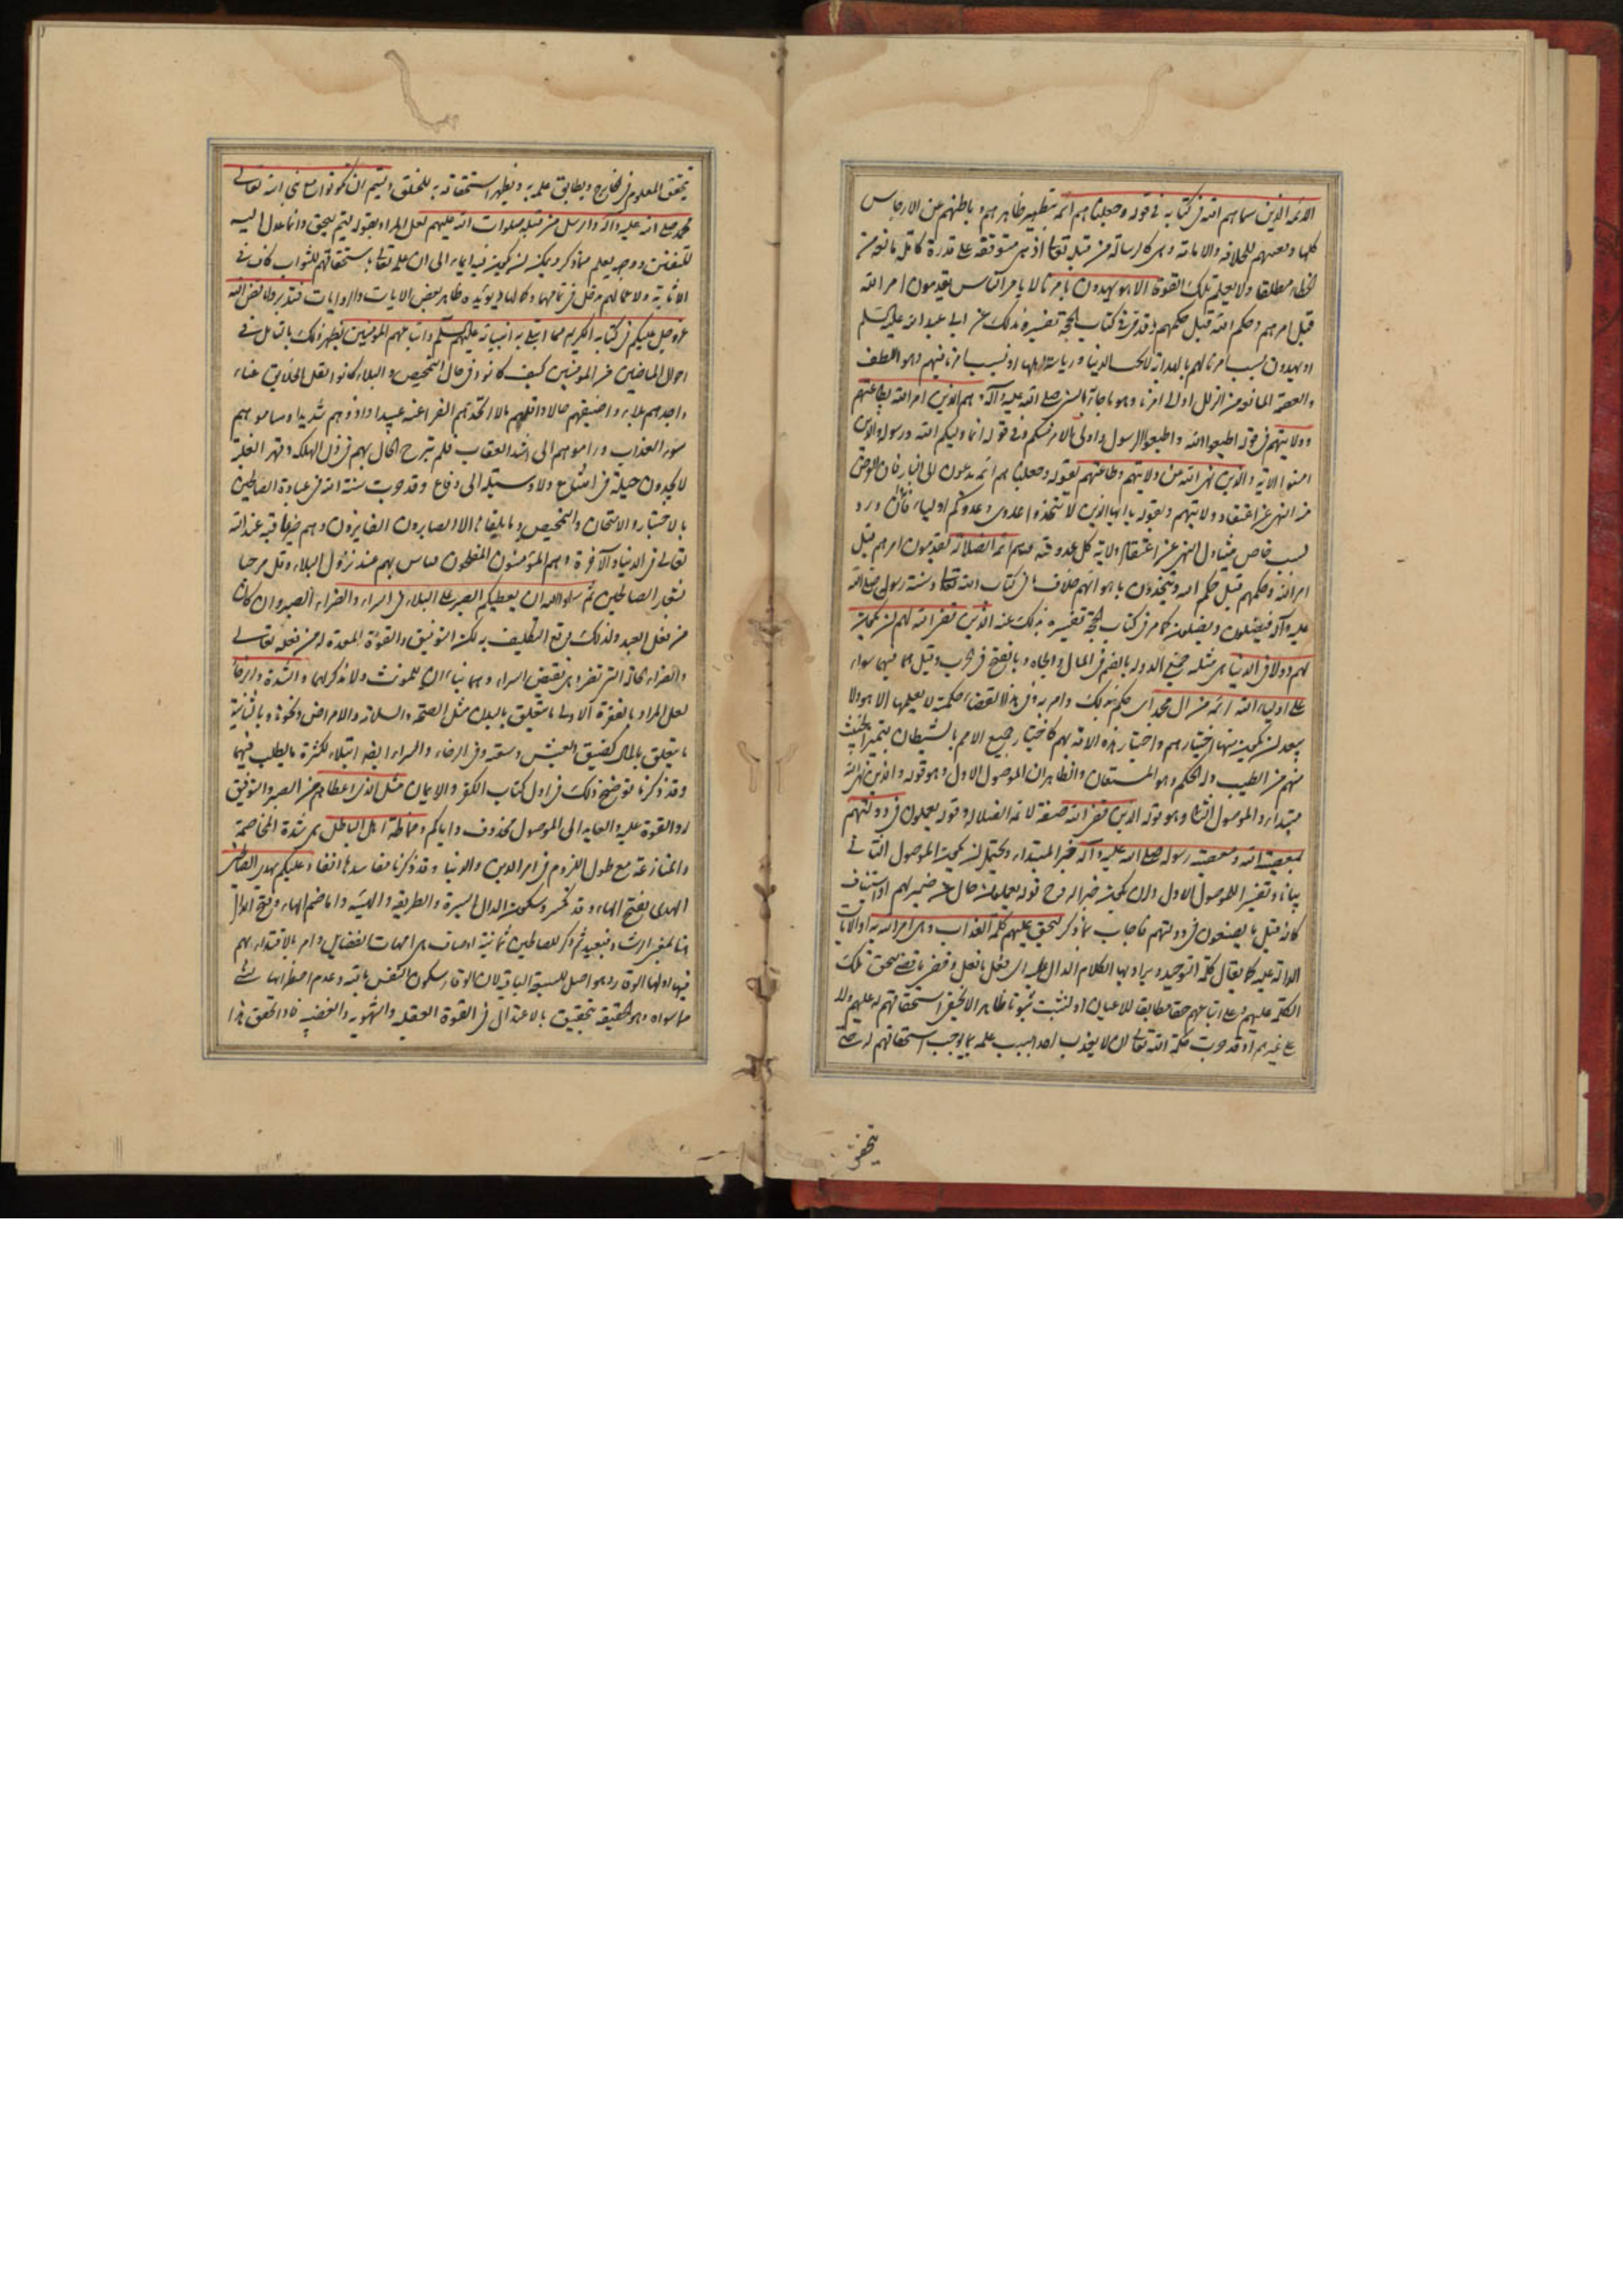 الائمة الذين سماهم الله في كتابه في قوله وجعلناهم ائمة بتطهير ظاهرهم وباطنهم عن الارجاس
كلها ونصبهم للخلافة والامامة وهى كالرسالة من قبله تعالى اذ هى متوقفة على قدرة كاملة مانعة من
الخطاء مطلقا ولا يعلم تلك القوة الا هو يهدون بامرنا لا بامر الناس يقدمون امر الله
قبل امرهم وحكم الله قبل حكمهم وقد مر فى كتاب الحجة تفسيره بذلك عن ابى عبد الله عليه السلم
او يهدون بسبب امرنا لهم بالهداية لا لحب الدنيا ورياسة اهلها او بسبب امرنا فيهم وهو اللطف
والعصمة المانعة من الزلل اولى امرنا وهو ما جاء به النبى صلى الله عليه وآله هم الذين امر الله بطاعتهم
وولايتهم فى قوله اطيعوا الله واطيعوا الرسول واولى الامر منكم وفى قوله انما وليكم الله ورسوله والذين
امنوا الاية والذين نهى الله عن ولايتهم وطاعتهم بقوله وجعلناهم ائمة يدعون الى النار فان الغرض
من النهى عن اعتقاد ولايتهم وبقوله يا ايها الذين لا تتخذوا عدوى وعدوكم اولياء فانه وان ورد
لسبب خاص متناول للنهى عن اعتقاد ولاية كل عدو لله وهم ائمة الضلالة يقدمون امرهم قبل
امر الله وحكمهم قبل حكم الله ويتخذون باهوائهم خلاف ما فى كتاب الله تعالى وسنة رسوله صلى الله
عليه وآله فيضلون ويضلون كما مر فى كتاب الحجة تفسيره بذلك عنه الذين قضى الله لهم ان يكون
لهم دول فى الدنيا هى مثلثة جمع الدولة بالضم فى المال والجاه وبالفتح فى الحرب وقيل هما فيهما سواء
على اولياء الله ائمة من ال محمد اى حكم بذلك وامر به وفى هذا القضاء حكمة لا يعلمها الا هو ولا
يبعد ان يكون منها اختبارهم واختبار هذه الامة بهم كاختبار جميع الامم بالشيطان ليتميز الخبيث
منهم من الطيب وله الحكم وهو المستعان والظاهر ان الموصول الاول وهو قوله والذين نهى الله
مبتداء والموصول الثانى وهو قوله الذين قضى الله صفة لائمة الضلالة وقوله يعملون فى دولتهم
بمعصية الله ومعصية رسوله صلى الله عليه وآله خبر المبتداء ويحتمل ان يكون الموصول الثانى
بيانا وتفسيرا للموصول الاول وان يكون خبرا له وح قوله يعملون حال عن ضمير لهم او استيناف
كانه قيل ما يصنعون فى دولتهم فاجاب بما ذكر ليحق عليهم كلمة العذاب وهى امر الله به او الايات
الدالة عليه كما يقال كلمة التوحيد ويراد بها الكلام الدال عليه اى فعل ما فعل وقضى ما قضى ليحق تلك
الكلمة عليهم وعلى اتباعهم حقا مطابقا للاعيان او لتثبت ثبوتا ظاهرا لا يخفى استحقاقهم له عليهم ولا
على غيرهم اذ قد جرت حكمة الله تعالى ان لا يعذب احدا بسبب علمه بما يوجب استحقاقهم له حتى
يتحقق
يتحقق المعلوم فى الخارج ويطابق علمه به ويظهر استحقاقه به للخلق وليتم ان تكونوا مع نبى الله تعالى
محمد صلى الله عليه وآله والرسل من قبله صلوات الله عليهم لعل المراد بقوله ليتم ليحق وانما عدل اليه
للتفنن ووجهه يعلم مما ذكر ويمكن ان يكون فيه ايماء الى ان علمه تعالى باستحقاقهم للثواب كاف فى
الاثابة ولاعمالهم مدخل فى تمامها وكمالها ويؤيده ظاهر بعض الايات والروايات فتدبروا ما قص الله
عز وجل عليكم فى كتابه الكريم مما ابتلى به انبيائه عليهم السلم واتباعهم المؤمنين يظهر ذلك بالتامل فى
احوال الماضين من المؤمنين كيف كانوا فى حال التمحيص والبلاء كانوا اثقل الخلايق عناء
واجهدهم بلاء واضيقهم حالا واقلهم مالا اتخذتهم الفراعنة عبيدا واذوهم شديدا وساموهم
سوء العذاب وراموهم الى اشد العقاب فلم تبرح الحال بهم فى ذل الهلكة وقهر الغلبة
لا يجدون حيلة فى امتناع ولا وسيلة الى دفاع وقد جرت سنة الله فى عباده الصالحين
بالاختبار والامتحان والتمحيص وما يلقاها الا الصابرون الفايزون وهم خير عاقبة عند الله
تعالى فى الدنيا والآخرة وهم المؤمنون المفلحون فلا باس بهم عند نزول البلاء وقل مرحبا
بشعار الصالحين ثم سلوا الله ان يعطيكم الصبر على البلاء فى السراء والضراء الصبر وان كان
من فعل العبد ولذلك وقع التكليف به لكن التوفيق والقوة المعدة له من فعله تعالى
والضراء الحالة التى تضر وهى نقيض السراء وهما بناءان للمونث ولا مذكر لهما والشدة والرخاء
لعل المراد بالفقرة الاولى ما يتعلق بالبدن مثل الصحة والسلامة والامراض ونحوها وبالثانية
ما يتعلق بالمال كضيق العيش وسعته وفى الرخاء والسراء ايضا ابتلاء لكثرة ما يطلب فيهما
وقد ذكرنا توضيح ذلك فى اول كتاب الكفر والايمان مثل الذى اعطاهم من الصبر والتوفيق
له والقوة عليه والعايد الى الموصول محذوف واياكم ومماظة اهل الباطل هى شدة المخاصمة
والمنازعة مع طول اللزوم فى امر الدين والدنيا وقد ذكرنا مفاسدها انفا وعليكم بهدى الصالحين
الهدى بفتح الهاء وقد تكسر وسكون الدال السيرة والطريقة والهيئة واما ضم الهاء وفتح الدال
هنا بمعنى الرشاد فبعيد ثم ذكر للصالحين ثمانية اوصاف هى امهات الفضايل وامر بالاقتداء بهم
فيها اولها الوقار وهو اصل للسبعة الباقية لان الوقار سكون النفس بالله وعدم اضطرابها فى
ما سواه وهو حقيقة تتحقق بالاعتدال فى القوة العقلية والشهوية والغضبية فاذا تحقق هذا